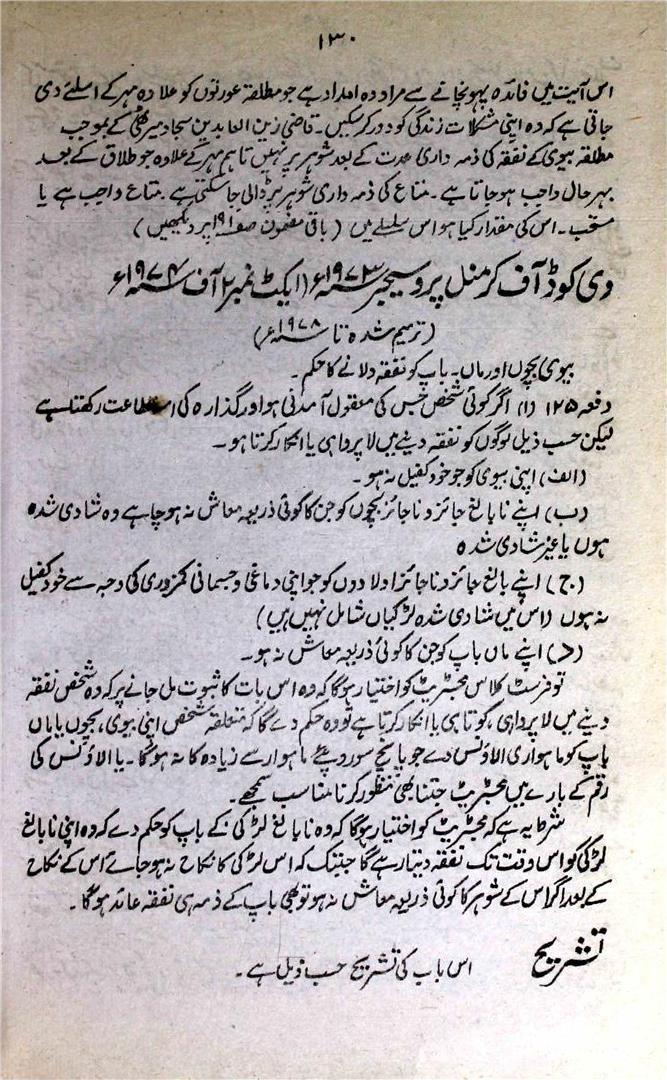 ۱۳۰
اس آیت میں فائدہ پہونچانے سے مراد وہ امداد ہے جو مطلقہ عورتوں کو علاوہ مہر کے اسلئے دی
جاتی ہے کہ وہ اپنی مشکلات زندگی کو دور کر سکیں۔ قاضی زین العابدین سجاد میرٹھی کے بموجب
مطلقہ بیوی کے نفقہ کی ذمہ داری عدت کے بعد شوہر پر نہیں تاہم مہر کے علاوہ جو طلاق کے بعد
بہر حال واجب ہو جاتا ہے۔ متاع کی ذمہ داری شوہر پر ڈالی جا سکتی ہے۔ متاع واجب ہے یا
مستحب۔ اس کی مقدار کیا ہو اس سلسلے میں (باقی مضمون صفحہ ۱۹۱ پر دیکھیں)
دی کوڈ آف کرمنل پروسیجر ۱۹۷۳ء (ایکٹ نمبر ۲ آف ۱۹۷۴ء
(ترمیم شدہ تا ۱۹۷۸ء)
بیوی بچوں اور ماں۔ باپ کو نفقہ دلانے کا حکم۔
دفعہ ۱۲۵ (۱) اگر کوئی شخص جس کی معقول آمدنی ہو اور گذارہ کی استطاعت رکھتا ہے
لیکن حسب ذیل لوگوں کو نفقہ دینے میں لاپرواہی یا انکار کرتا ہو۔
(الف) اپنی بیوی کو جو خود کفیل نہ ہو۔
(ب) اپنے نابالغ جائز و ناجائز بچوں کو جن کا کوئی ذریعہ معاش نہ ہو چاہے وہ شادی شدہ
ہوں یا غیر شادی شدہ
(ج) اپنے بالغ جائز و ناجائز اولادوں کو جو اپنی دماغی و جسمانی کمزوری کی وجہ سے خود کفیل
نہ ہوں (اس میں شادی شدہ لڑکیاں شامل نہیں ہیں)
(د) اپنے ماں باپ کو جن کا کوئی ذریعہ معاش نہ ہو۔
تو فرسٹ کلاس مجسٹریٹ کو اختیار ہوگا کہ وہ اس بات کا ثبوت مل جانے پر کہ وہ شخص نفقہ
دینے میں لاپرواہی، کوتاہی یا انکار کرتا ہے تو وہ حکم دے گا کہ متعلقہ شخص اپنی بیوی، بچوں یا ماں
باپ کو ماہواری الاؤنس دے جو پانچ سو روپئے ماہوار سے زیادہ کا نہ ہوگا۔ یا الاؤنس کی
رقم کے بارے میں مجسٹریٹ جتنا بھی منظور کرنا مناسب سمجھے۔
شرط یہ ہے کہ مجسٹریٹ کو اختیار ہوگا کہ وہ نابالغ لڑکی کے باپ کو حکم دے کہ وہ اپنی نابالغ
لڑکی کو اس وقت تک نفقہ دیتا رہے گا جبتک کہ اس لڑکی کا نکاح نہ ہو جائے اس کے نکاح
کے بعد اگر اس کے شوہر کا کوئی ذریعہ معاش نہ ہو تو بھی باپ کے ذمہ ہی نفقہ عائد ہوگا۔
تشریح اس باب کی تشریح حسب ذیل ہے۔